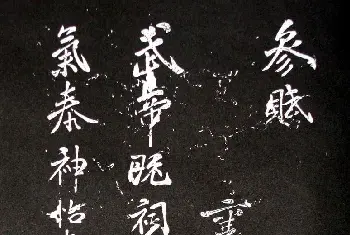 參賦
武帝既祠
氣泰神怡